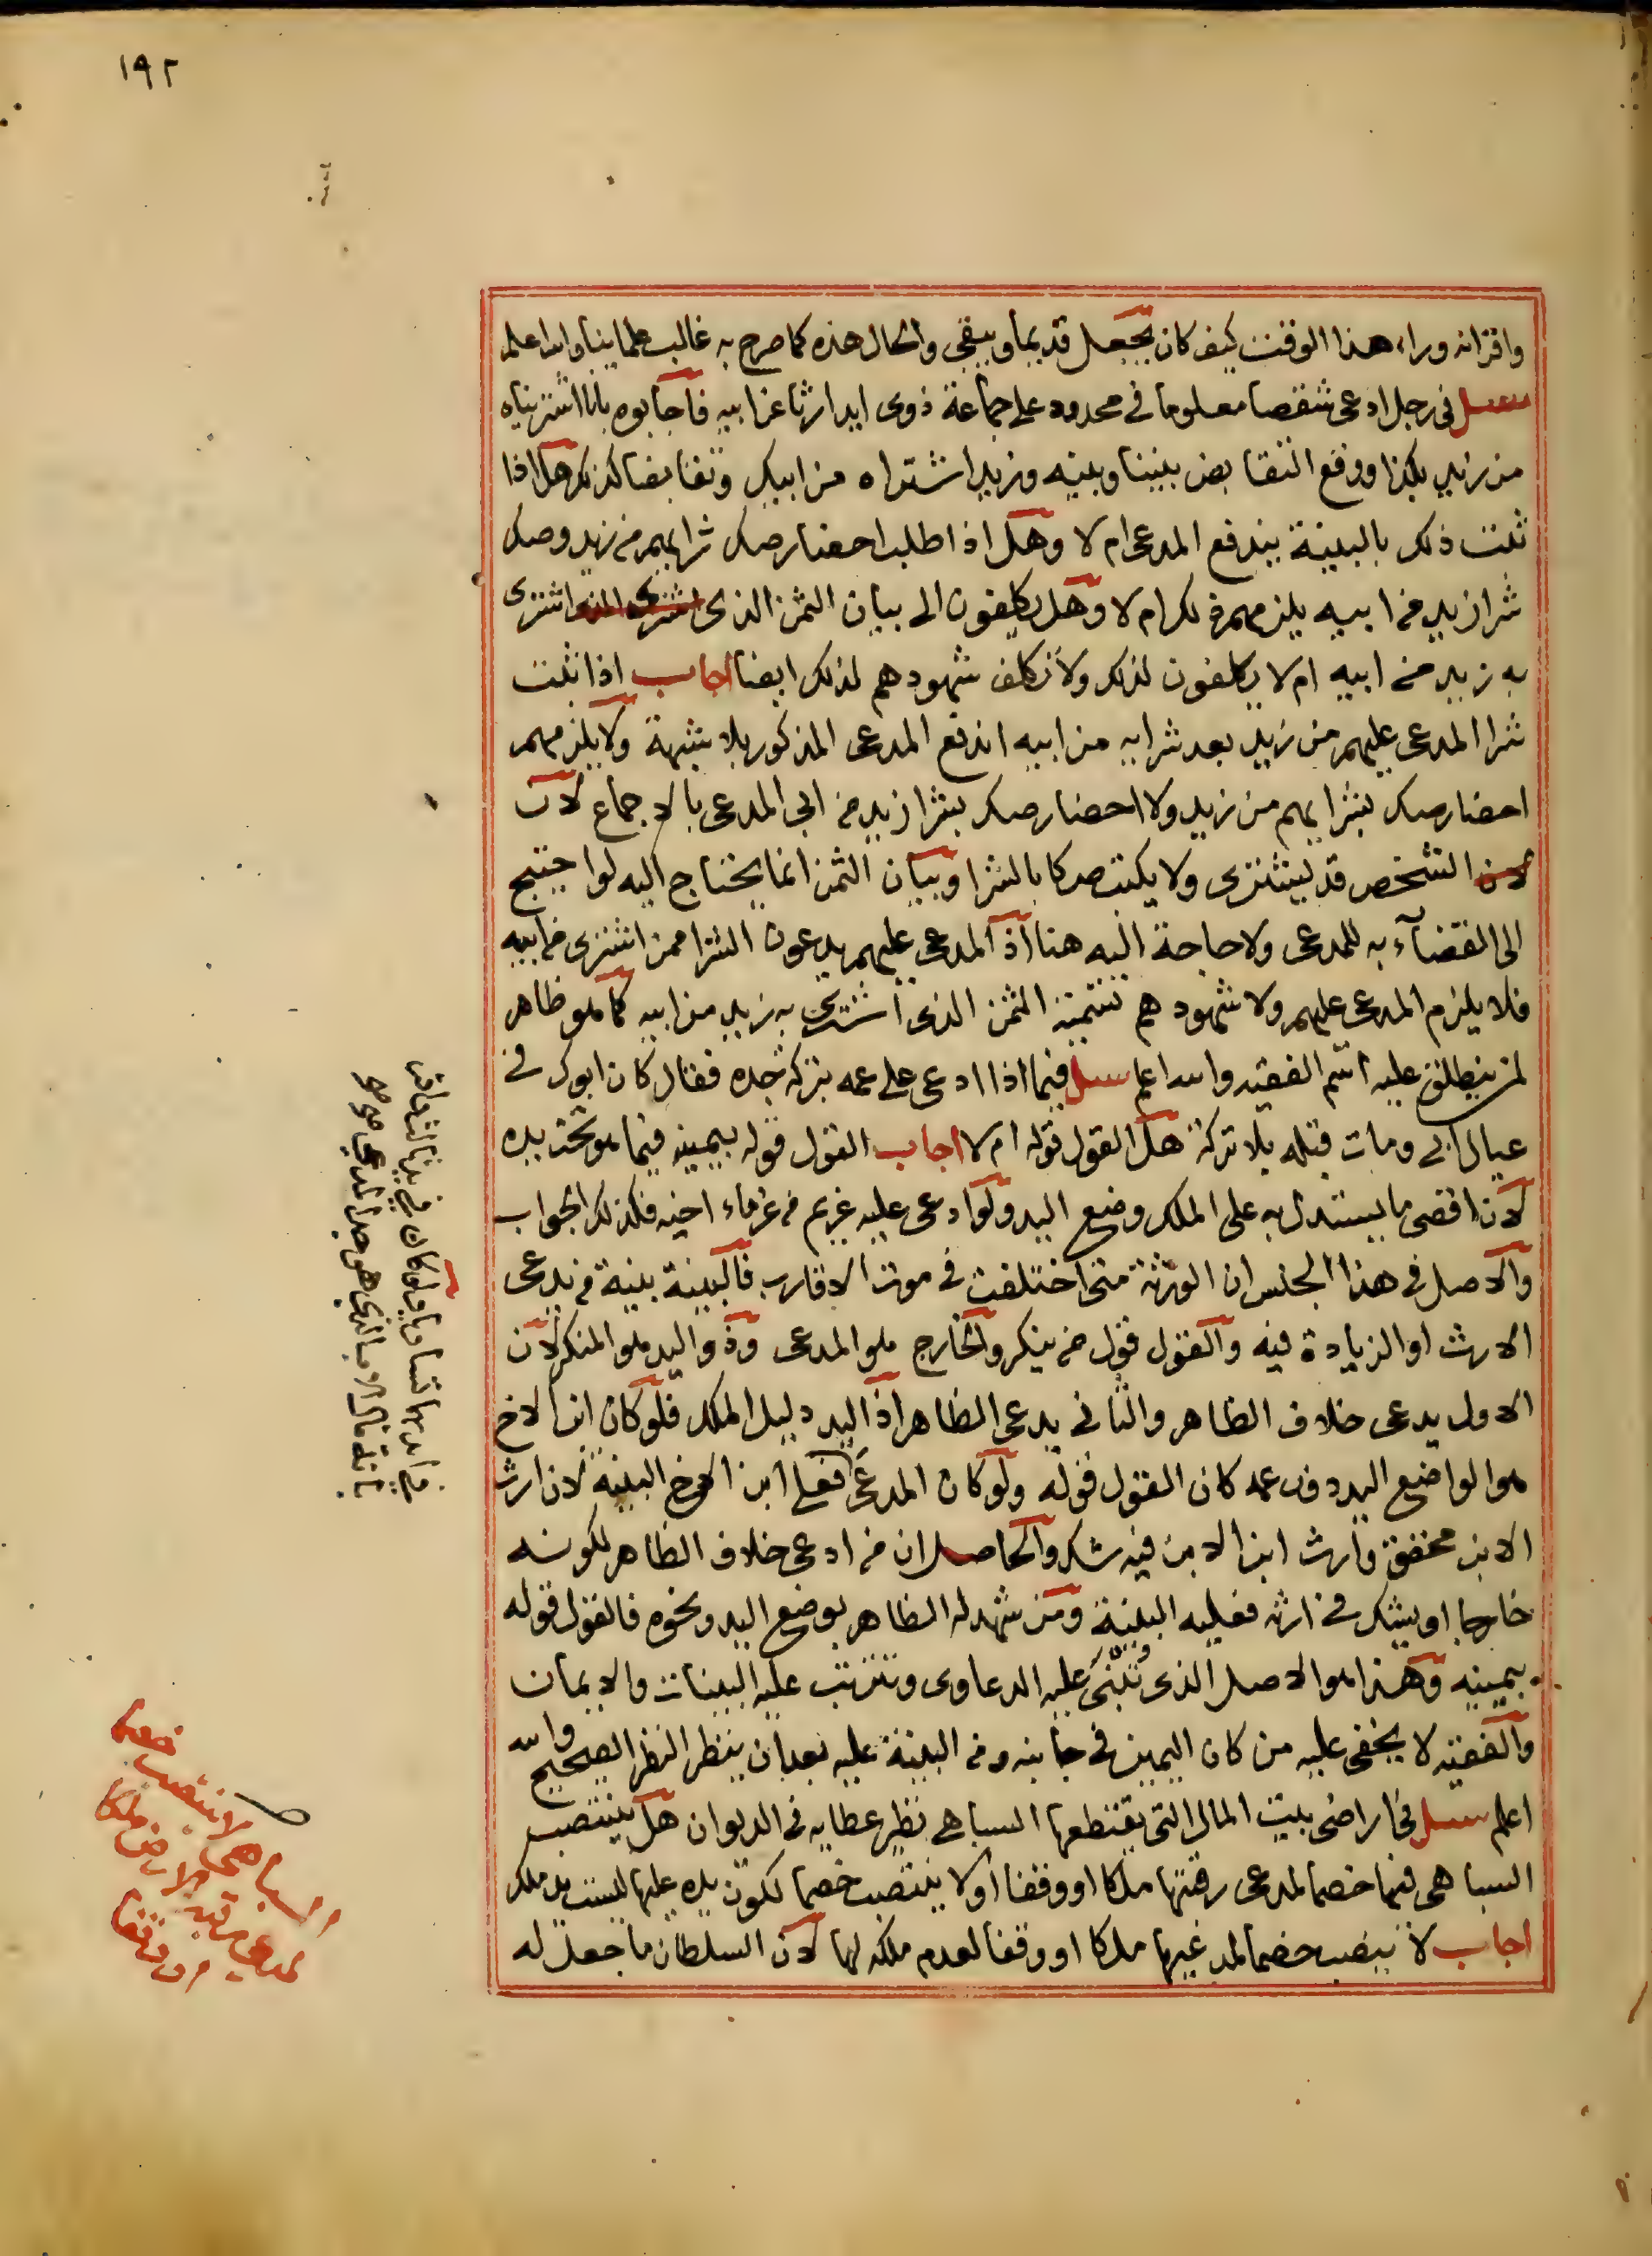 ١٩٢
واقرانه وراء هذا الوقت كيف كان يجعل قديما ويبقى والحال هذه كما صرح به غالب علماينا والله اعلم
سئل فى رجل ادعى شقصا معلوما فى محدود على جماعة ذوى ايد ارثا عن ابيه فاجابوه بانا اشتريناه
من زيد بكذا ووقع التقابض بيننا وبينه وزيد اشتراه من ابيك وتقابضا كذلك هل اذا
ثبت ذلك بالبينة يندفع المدعى ام لا وهل اذا طلب احضار صك شرايهم من زيد وصك
شرا زيد من ابيه يلزمهم ذلك ام لا وهل يكلفون الى بيان الثمن الذى اشترى
به زيد من ابيه ام لا يكلفون لذلك ولا تكلف شهودهم لذلك ايضا اجاب اذا ثبت
شرا المدعى عليهم من زيد بعد شرايه من ابيه اندفع المدعى المذكور بلا شبهة ولا يلزمهم
احضار صك بشرايهم من زيد ولا احضار صك بشرا زيد من ابى المدعى بالاجماع لان
الشخص قد يشترى ولا يكتب صكا بالشرا وبيان الثمن انما يحتاج اليه لو احتيج
الى القضآء به للمدعى ولا حاجة اليه هنا اذ المدعى عليهم يدعون الشرا ممن اشترى من ابيه
فلا يلزم المدعى عليهم ولا شهودهم تسمية الثمن الذى اشترى به زيد من ابيه كما هو ظاهر
لمن ينطلق عليه اسم الفقيه والله اعلم سئل فيما اذا ادعى على عمه بتركة جده فقال كان ابوك فى
عيال ابى ومات قبله بلا تركة هل القول قوله ام لا اجاب القول قوله بيمينه فيما هو تحت يده
لان اقصى ما يستدل به على الملك وضع اليد ولو ادعى عليه غريم من غرماء اخيه فكذلك الجواب
والاصل فى هذا الجنس ان الورثة متى اختلفت فى موت الاقارب فالبينة بينة من يدعى
الارث او الزيادة فيه والقول قول من ينكر والخارج هو المدعى وذو اليد هو المنكر لان
الاول يدعى خلاف الظاهر والثانى يدعى الظاهر اذ اليد دليل الملك فلو كان ابن الاخ
هو الواضع اليد دون عمه كان القول قوله ولو كان المدعى فعلى ابن الاخ البينة لان ارث
الابن محقق وارث ابن الابن فيه شك والحاصل ان من ادعى خلاف الظاهر لكونه
خارجا او يشك فى ارثه فعليه البينة ومن شهد له الظاهر بوضع اليد ونحوه فالقول قوله
بيمينه وهذا هو الاصل الذى تبنى عليه الدعاوى وتترتب عليه البينات والايمان
والفقيه لا يخفى عليه من كان اليمين فى جانبه ومن البينة عليه بعد ان ينظر النظر الصحيح والله
اعلم سئل فى اراضى بيت المال التى يقتطعها السباهى نظير عطايه فى الديوان هل ينتصب
السباهى فيها خصما لمدعى رقبتها ملكا او وقفا او لا ينتصب خصما لكون يده عليها ليست يد ملك
اجاب لا ينتصب خصما لمدعيها ملكا او وقفا لعدم ملكه لها لان السلطان ما جعل له
السباهى لا ينتصب خصما
لمدعى رقبة الارض ملكا
او وقفا